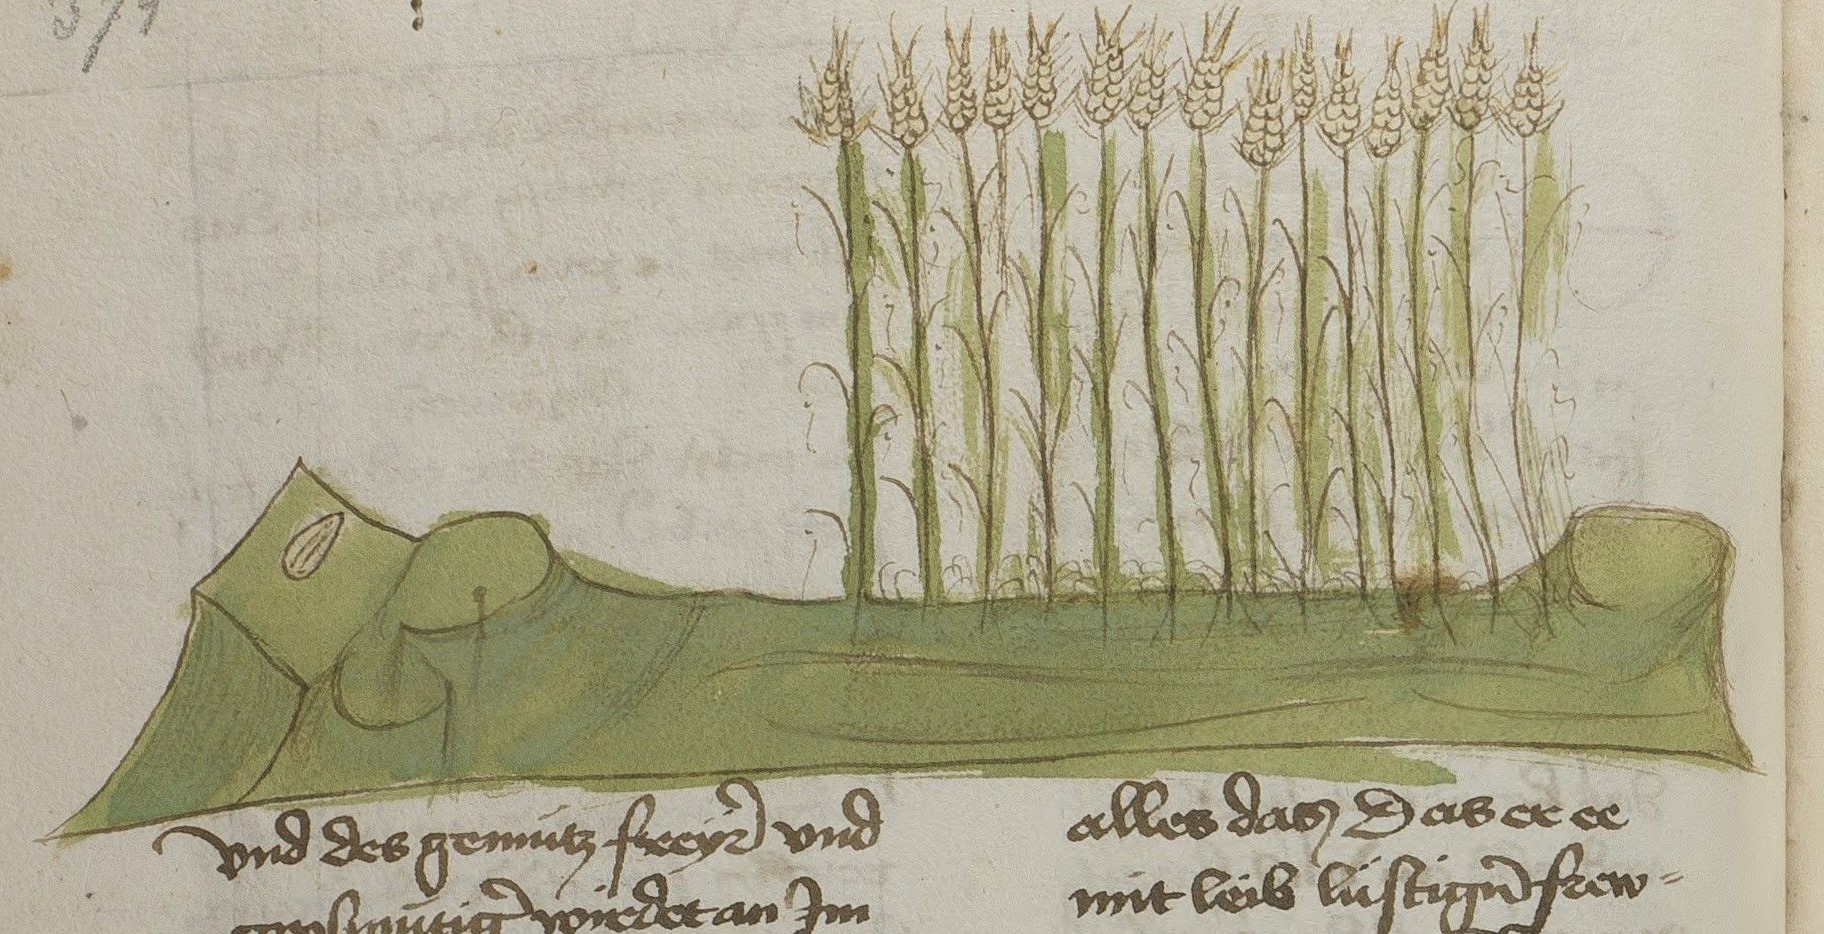 vnd des gemütz freyer vnd
wirdet an Im
alles das Das er ee
mit leib lüstigñ frew=